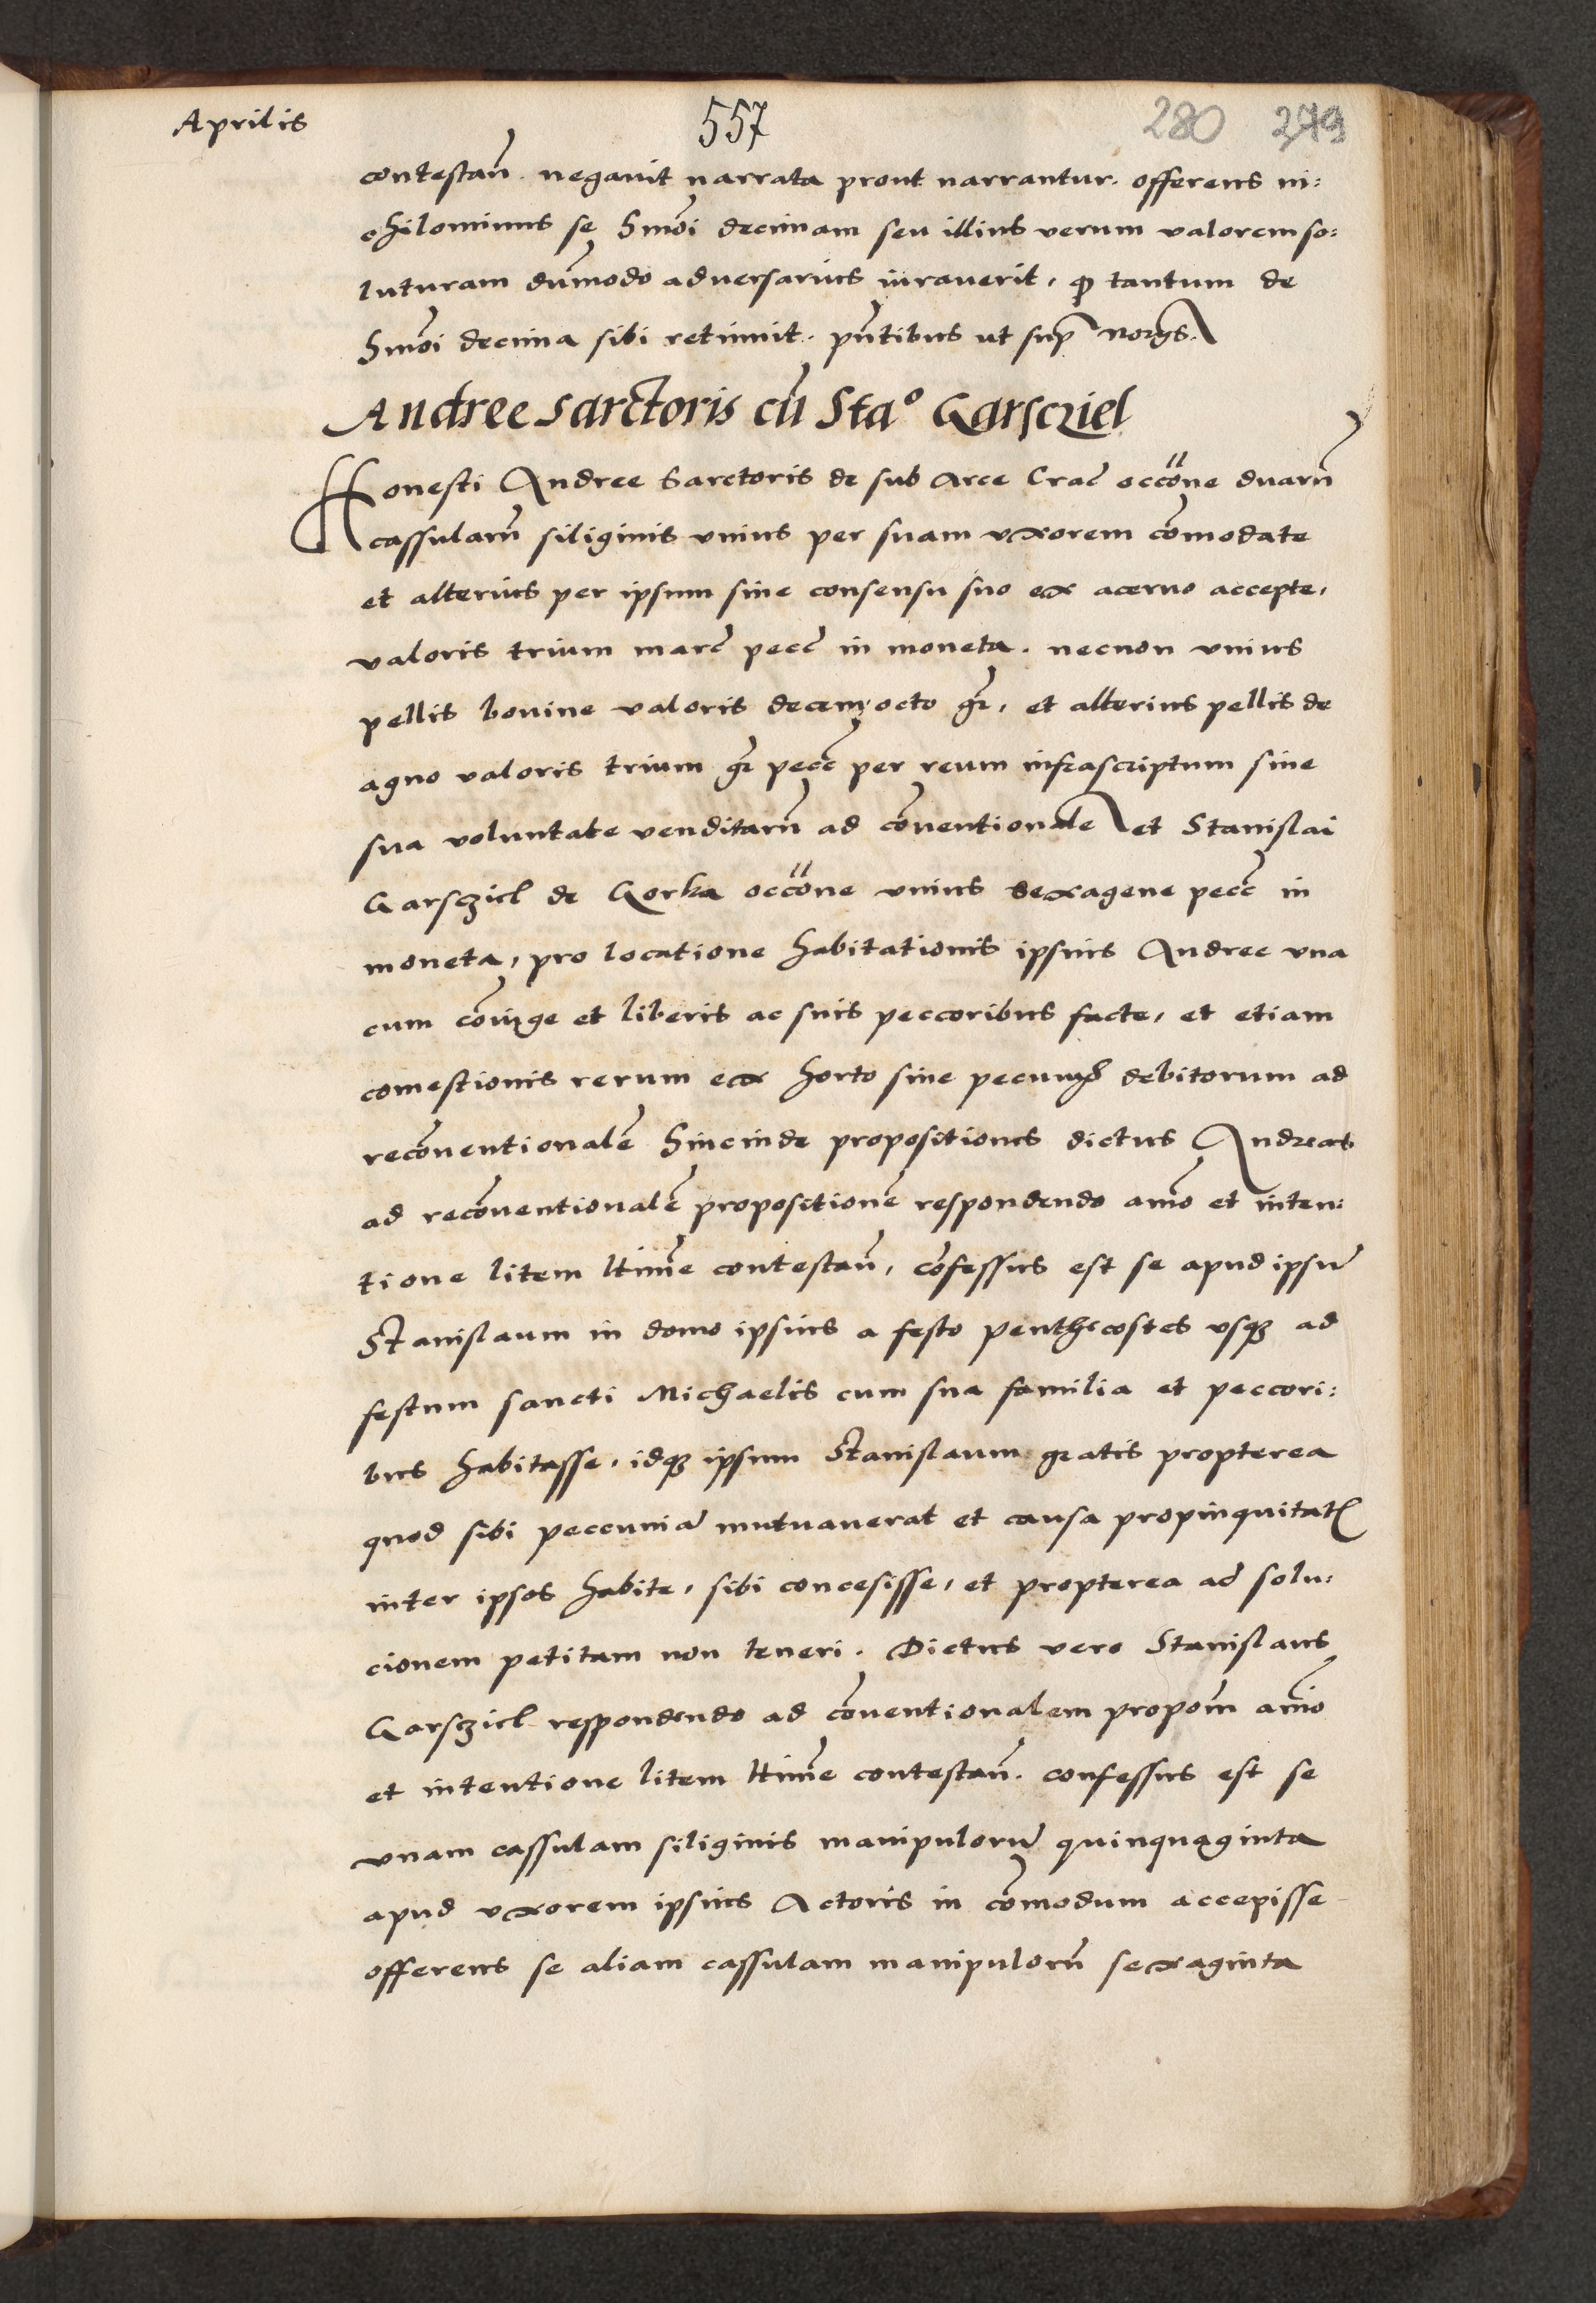 Aprilis
557
280 279
contestan̄. negauit narrata prout narrantur. offerens ni:
chilominus se hmōi decimam seu illius verum valorem so:
luturam dūmodo aduersarius iurauerit, ꝙ tantum de
hmōi decima sibi retinuit. pn̄tibus ut sup̄
Andree Sarctoris cū Sta° Garscziel
Honesti Andree Sarctoris de sub Arce Crac̄ occōne duarū
cassularū siliginis vnius per suam vxorem cōmodate
et alterius per ipsum sine consensu suo ex aceruo accepte,
valoris trium marc̄ pecc̄ in moneta. necnon vnius
pellis bouine valoris decem octo gr̄, et alterius pellis de
agno valoris trium gr̄ pecc̄ per reum infrascriptum sine
sua voluntate venditarū ad cōuentionale et Stanislai
Garsczicl de Gorka occōne vnius sexagene pecc̄ in
moneta, pro locatione habitationis ipsius Andree vna
cum cōiuge et liberis ac suis peccoribus facte, et etiam
comestionis rerum ex horto sine debitorum ad
recōuentionalē hincinde propositiones dictus Andreas
ad recōuentionalē propositionē respondendo aīo et inten:
tione litem lītime contestan̄, cōfessus est se apud ipsū
Stanislaum in domo ipsius a festo penthecostes vsqȝ ad
festum sancti Michaelis cum sua familia et peccori:
bus habitasse, idqȝ ipsum Stanislaum gratis propterea
quod sibi peccuniā mutuauerat et causa propinquitatꝭ
inter ipsos habite, sibi concesisse, et propterea ad solu:
cionem petitam non teneri. Dictus vero Stanislaus
Garsczicl respondendo ad cōuentionalem propōm aīo
et intentione litem lītime contestan̄. confessus est se
vnam cassulam siliginis manipulorū quinquaginta
apud vxorem ipsius Actoris in cōmodum accepisse
offerens se aliam cassulam manipulorū sexaginta